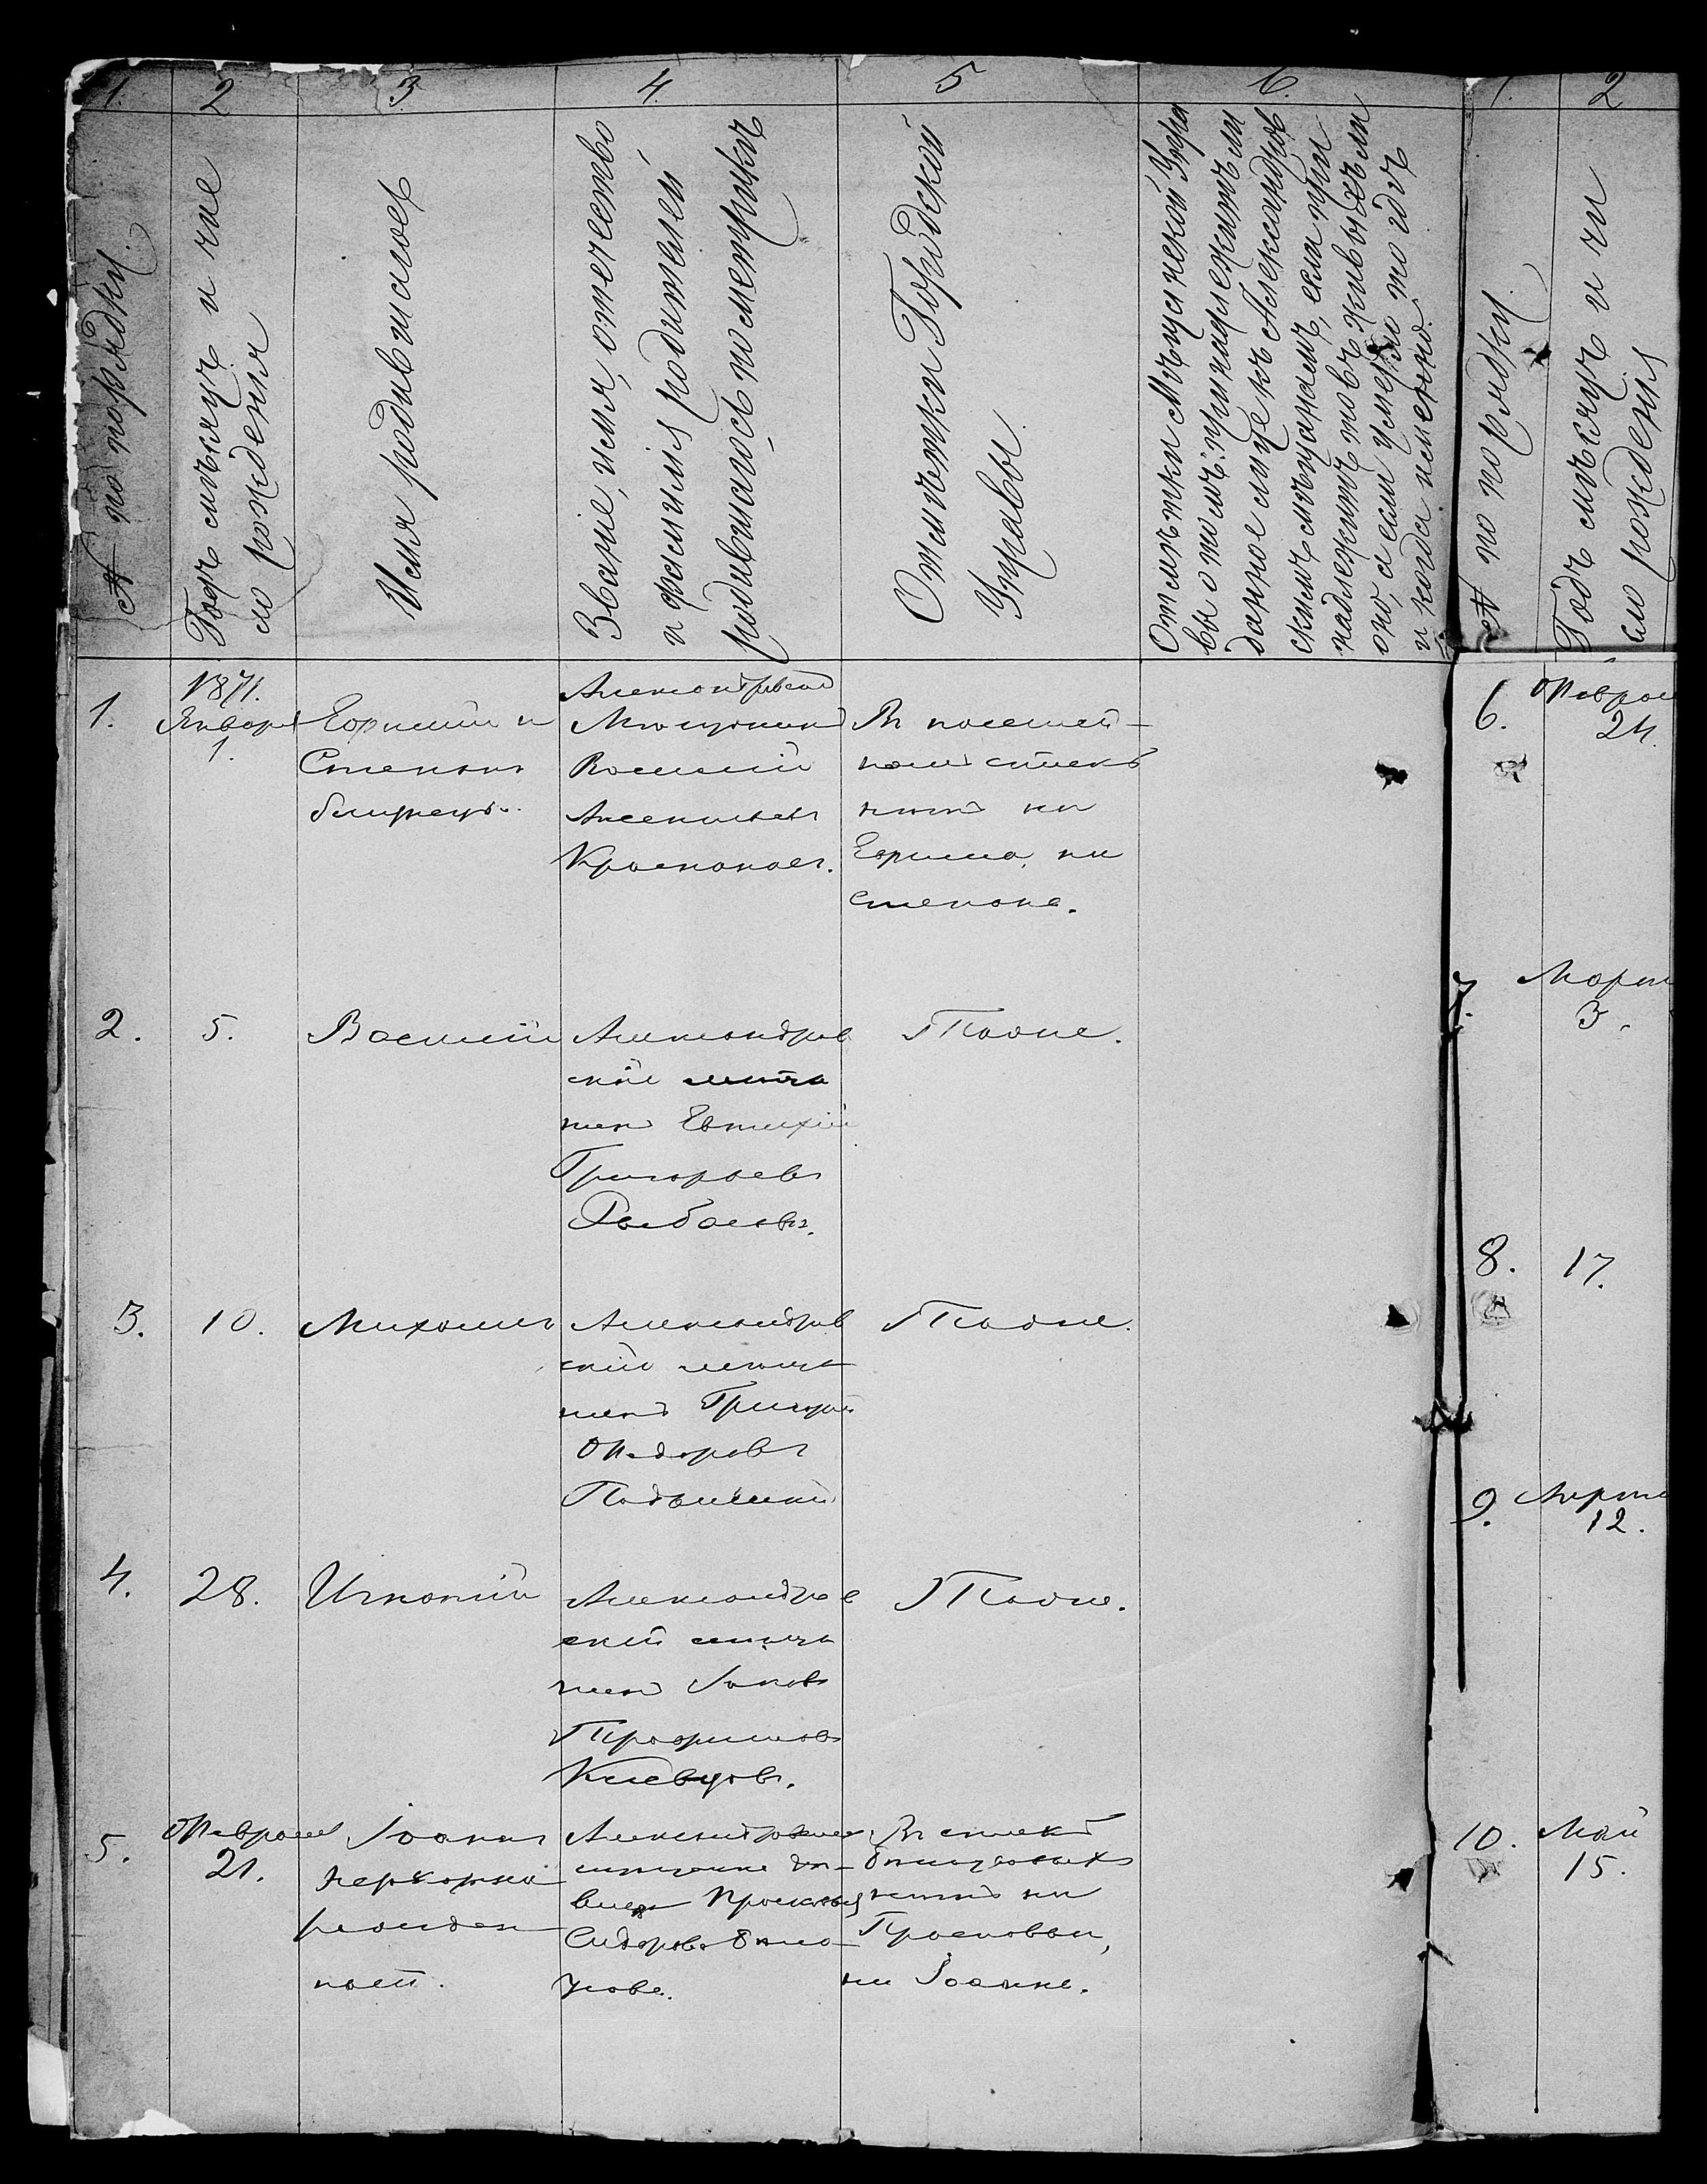 1.
2
3
4.
5
6.
№ по порядку.
Годъ мѣсяцъ и чис
ло рожденія
Имя родившагося
Званіе, имя, отечество
и фамилія родителей
родившагося по метрикѣ
Отмѣтки Городской
Управы.
Отмѣтки Мѣщанской Упра
вы о томъ: принадлежитъ ли
данное лице къ Александров
скимъ мѣщанамъ, если при
надлежитъ то въ живыхъ ли
оно, а если умерло то гдѣ
и когда именно.
1.
1871.
Января
1.
Ефимій и
Степанъ
близнецы.
Александровскій
Мѣщанинъ
Василій
Аксентьевъ
Краснокаев.
Въ посемей-
номъ спискѣ
нѣтъ ни
Ефима, ни
Степана.
2.
5.
Василій
Александров
скій мѣща
нинъ Евтихій
Григорьевъ
Рыбаловъ.
Тоже.
3.
10.
Михаилъ
Александров
скій мѣща
нинъ Григорій
Федоровъ
Тоже.
4.
28.
Игнатій
Александров
скій мѣща
нинъ Яковъ
Трофимовъ
Клевцовъ.
Тоже.
5.
Февраля
21.
Іоаннъ
незаконно
рожден
ный.
Александровская
мѣщанка дѣ-
вица Прасковья
Сидорова
Въ спискѣ
нѣтъ ни
Прасковьи,
ни Іоанна.
1.
2
№ по порядку
Годъ мѣсяцъ и чи
сло рожденія
6.
Феврал
24.
7.
Март
3.
8.
17.
9.
Апрѣл
12.
10.
Май
15.